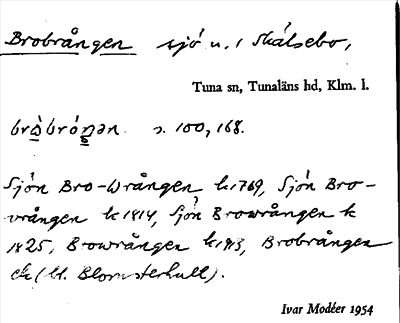 Brobrången sjö u. i Skälsebo,
Tuna sn, Tunaläns hd, Klm. l.
s. 100, 168.
Sjön Bro-Wrången k 1769, Sjön Bro-
vrången k 1814, Sjön Browrången k
1825, Browrången k 1913, Brobrången
ek (H. Blomsterhult).
Ivar Modéer 1954